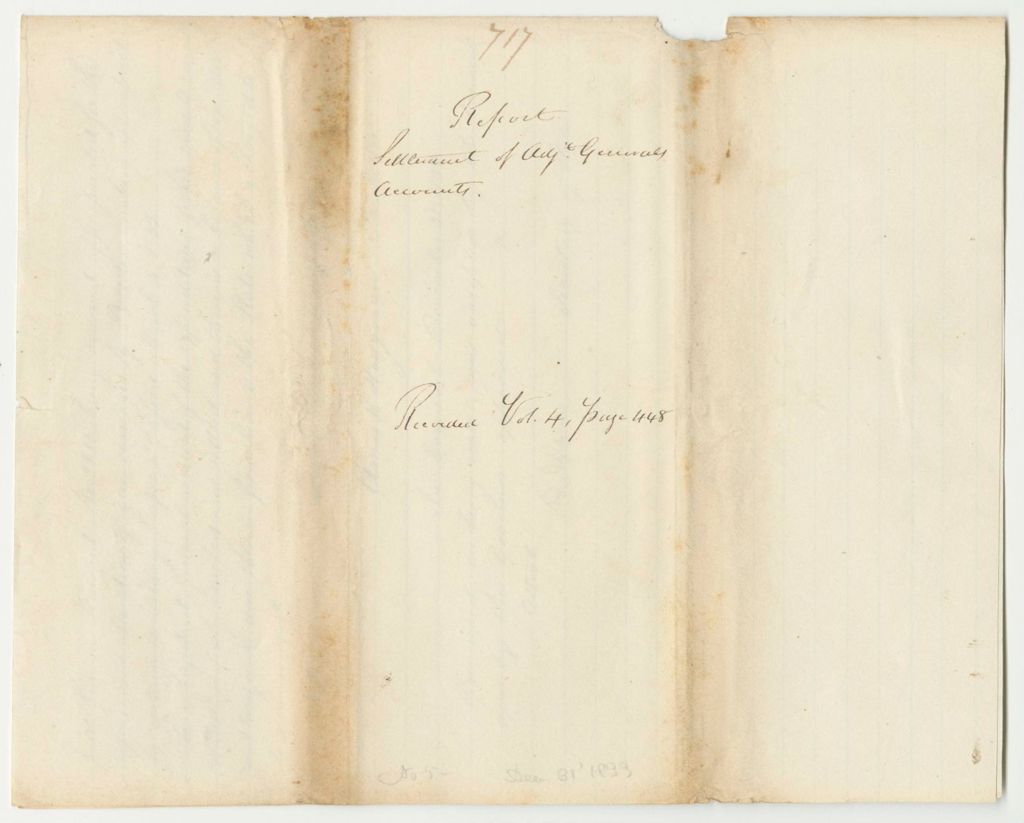 717
Report
Settlement of Adjt. Generals
Accounts.
Recorded Vol. 4, page 448
No 5
Dec 31 1839